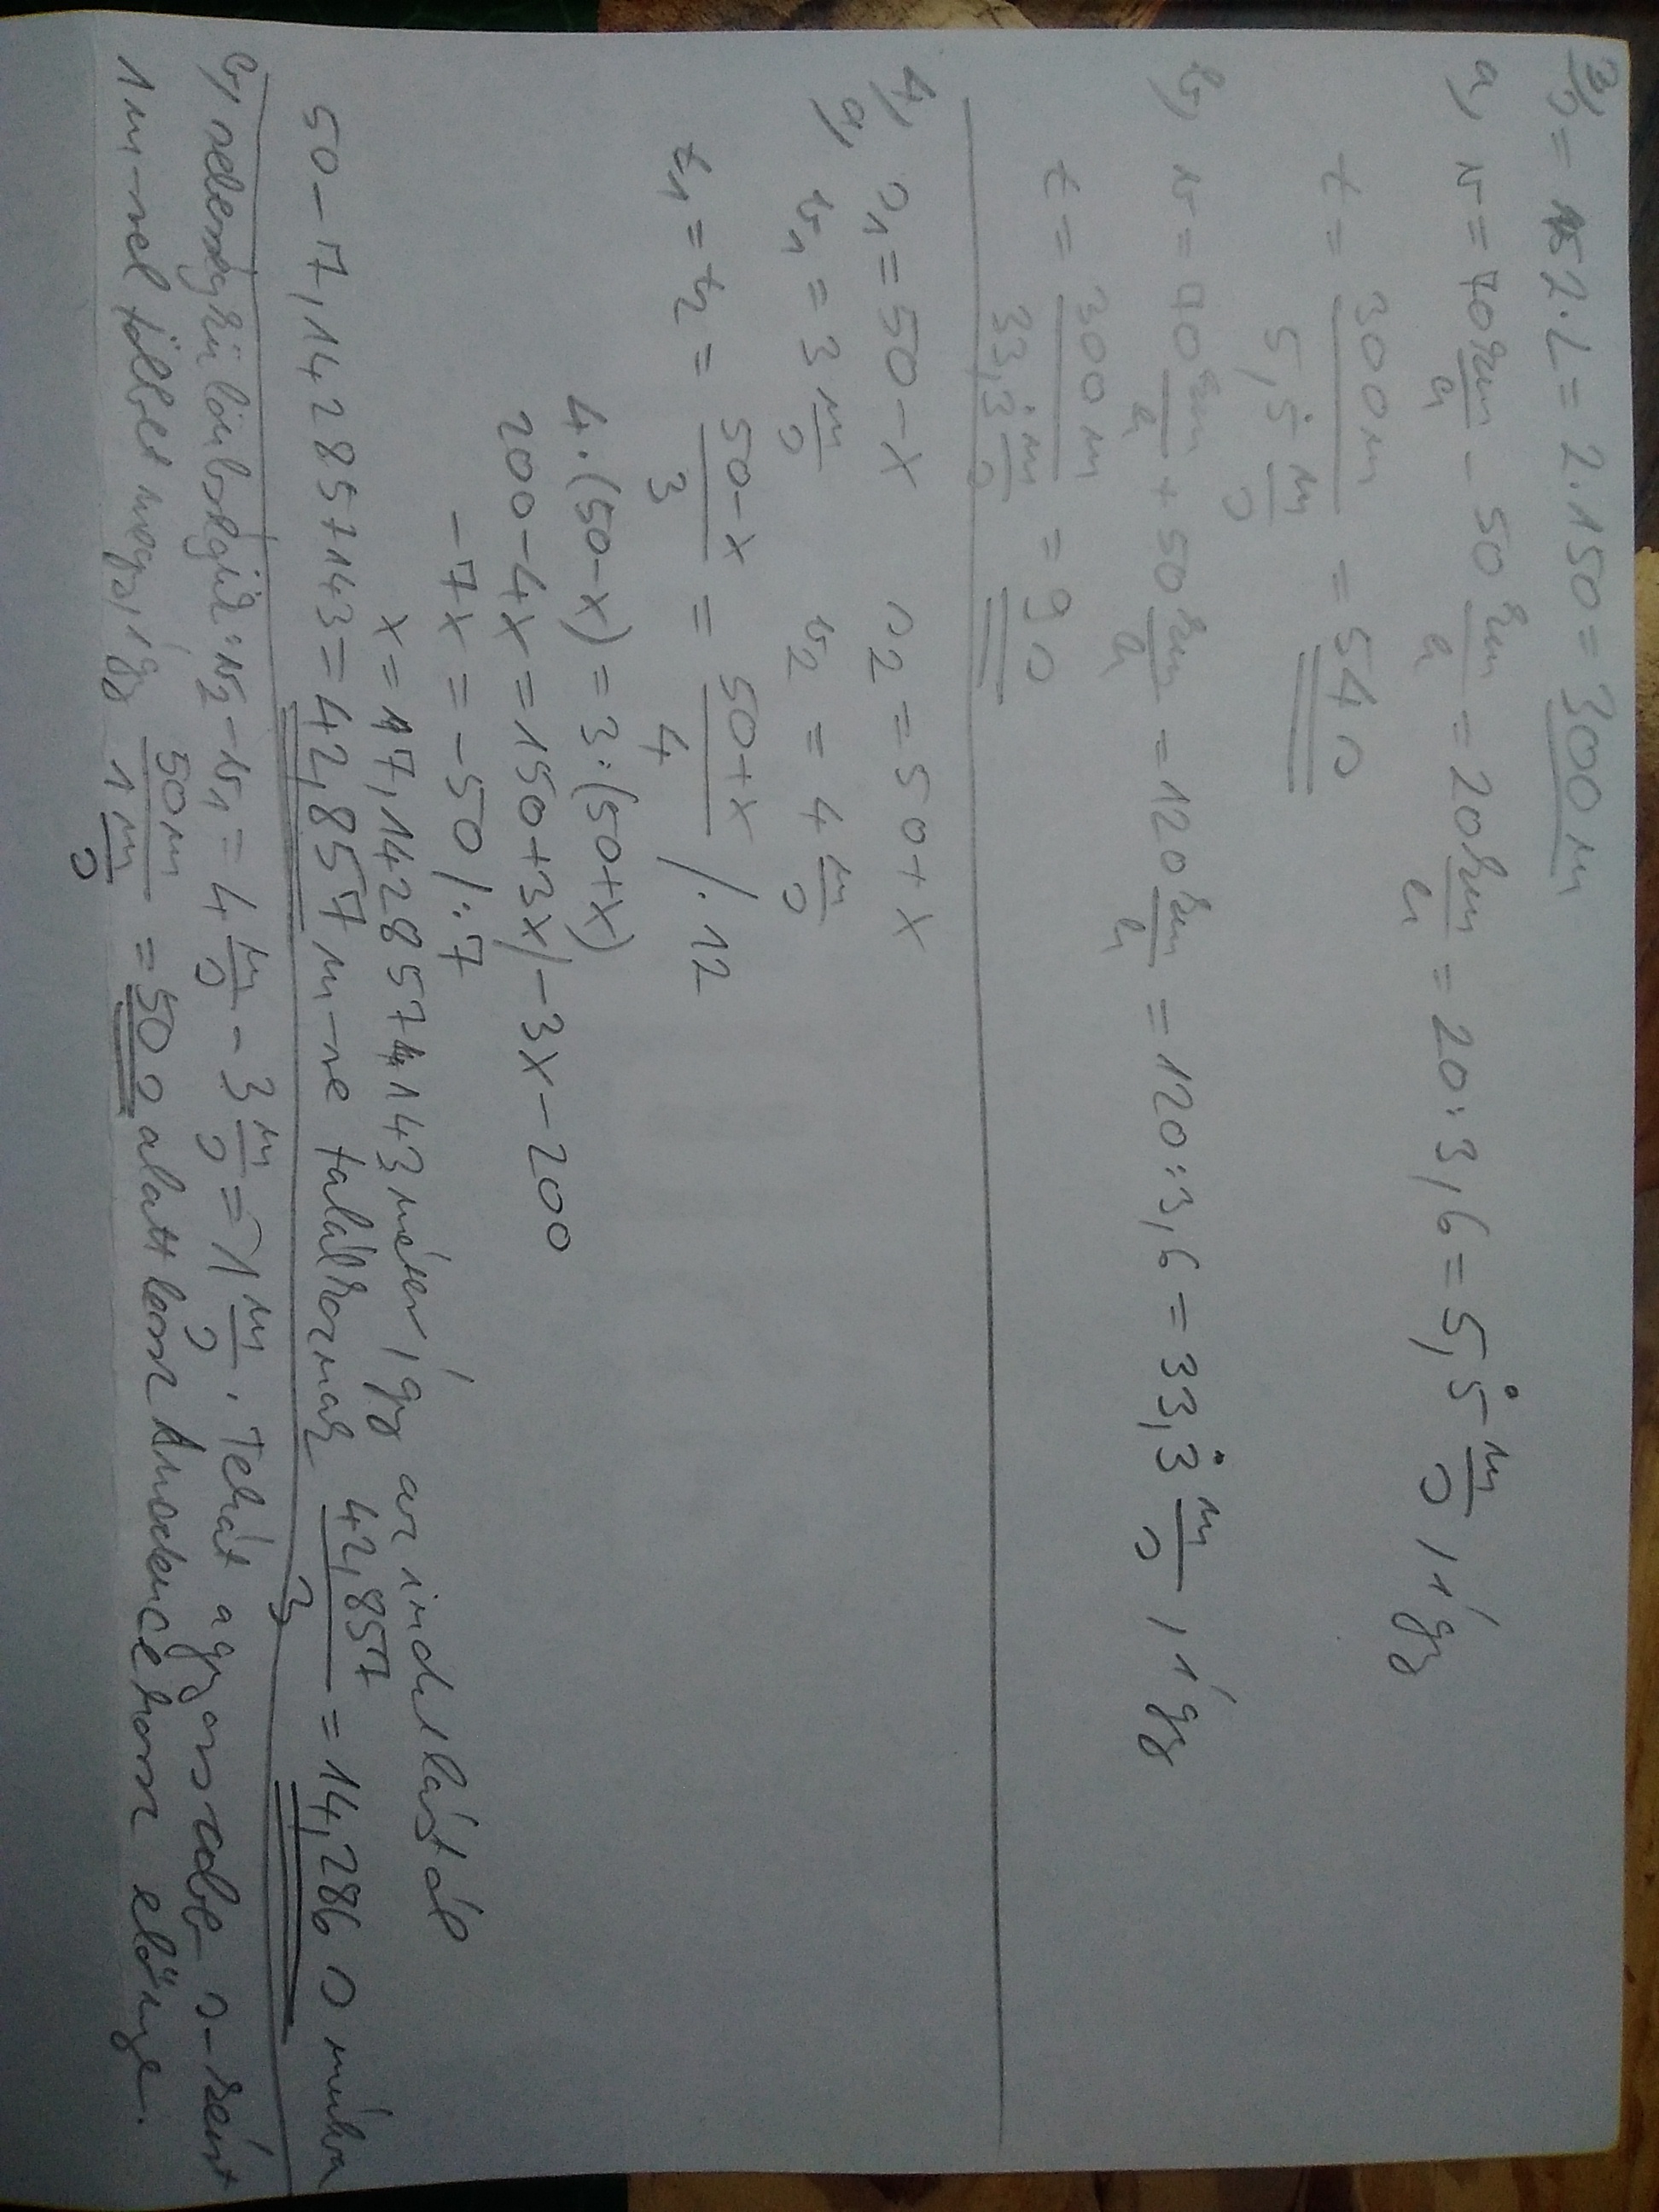 3, s = 2·L = 2·150 = 300 m
a, v = 70 km/h - 50 km/h = 20 km/h = 20:3,6 = 5,5̇ m/s, így
t = 300 m / 5,5̇ m/s = 54 s
b, v = 70 km/h + 50 km/h = 120 km/h = 120:3,6 = 33,3̇ m/s, így
t = 300 m / 33,3̇ m/s = 9 s
4, s₁ = 50-x s₂ = 50+x
a, v₁ = 3 m/s v₂ = 4 m/s
t₁ = t₂ = (50-x)/3 = (50+x)/4 /·12
4·(50-x) = 3·(50+x)
200-4x = 150+3x /-3x-200
-7x = -50 /:7
x = 7,142857143 méter, így az indulástól
50-7,142857143 = 42,857 m-re találkoznak 42,857/3 = 14,286 s múlva
b, sebességkülönbségük: v₂-v₁ = 4 m/s - 3 m/s = 1 m/s. Tehát a gyorsabb s-ként
1 m-rel többet megy, így 50 m / 1 m/s = 50 s alatt lesz előnye.